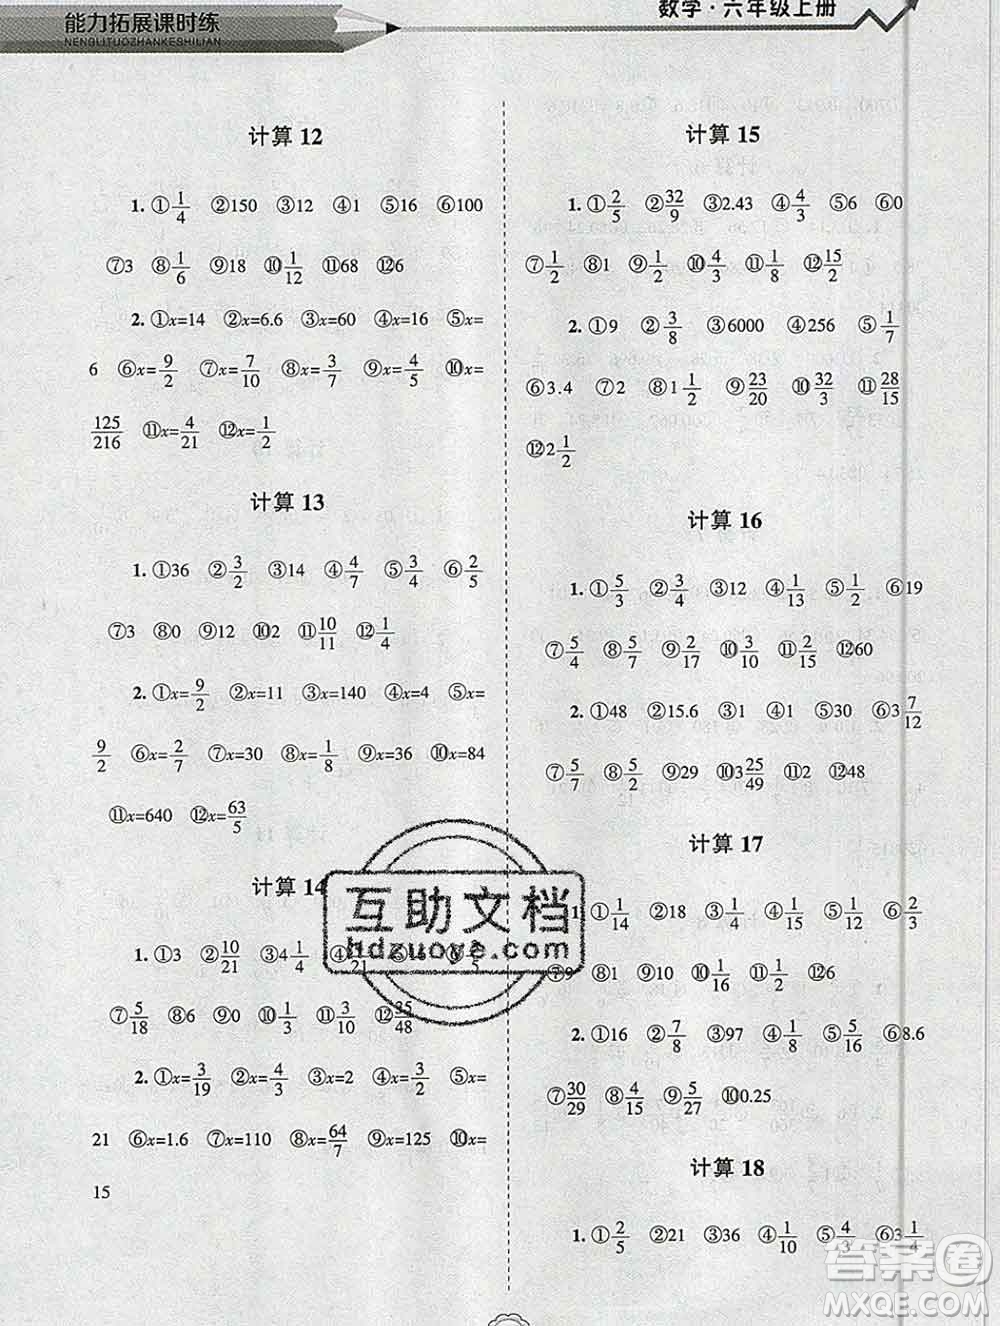 能力拓展课时练
NENGLITUOZHANKESHILIAN
数学·六年级上册
计算 12
1. ①1/4 ②150 ③12 ④1 ⑤16 ⑥100
⑦3 ⑧1/6 ⑨18 ⑩1/12 ⑪68 ⑫6
2. ①x=14 ②x=6.6 ③x=60 ④x=16 ⑤x=
6 ⑥x=9/2 ⑦x=7/10 ⑧x=3/7 ⑨x=4/5 ⑩x=
125/216 ⑪x=4/21 ⑫x=1/2
计算 13
1. ①36 ②3/2 ③14 ④4/7 ⑤3/4 ⑥2/5
⑦3 ⑧0 ⑨12 ⑩2 ⑪10/11 ⑫1/4
2. ①x=9/2 ②x=11 ③x=140 ④x=4 ⑤x=
9/2 ⑥x=2/7 ⑦x=30 ⑧x=1/8 ⑨x=36 ⑩x=84
⑪x=640 ⑫x=63/5
计算 14
1. ①3 ②10/21 ③4 1/4
⑦5/18 ⑧6 ⑨0 ⑩1/3 ⑪3/10 ⑫35/48
2. ①x=3/19 ②x=4/3 ③x=2 ④x=4/3 ⑤x=
21 ⑥x=1.6 ⑦x=110 ⑧x=64/7 ⑨x=125 ⑩x=
15
计算 15
1. ①2/5 ②32/9 ③2.43 ④4/3 ⑤6 ⑥0
⑦1/2 ⑧1 ⑨1/2 ⑩4/3 ⑪1/8 ⑫15/2
2. ①9 ②3/8 ③6000 ④256 ⑤1/7
⑥3.4 ⑦2 ⑧1 1/2 ⑨23/20 ⑩32/3 ⑪28/15
⑫2 1/2
计算 16
1. ①5/3 ②3/4 ③12 ④1/13 ⑤1/2 ⑥19
⑦5/4 ⑧5/7 ⑨2/17 ⑩3/10 ⑪2/15 ⑫60
2. ①48 ②15.6 ③1 ④1 ⑤30 ⑥3 7/12
⑦5/7 ⑧5/2 ⑨29 ⑩3 25/49 ⑪2 ⑫48
计算 17
1. ①1/14 ②18 ③1/4 ④1/15 ⑤1/12 ⑥2/3
⑦9 ⑧1 ⑨1/2 ⑩1/16 ⑪1/2 ⑫6
2. ①16 ②7/8 ③97 ④1/8 ⑤5/16 ⑥8.6
⑦30/29 ⑧4/15 ⑨5/27 ⑩0.25
计算 18
1. ①2/5 ②21 ③36 ④1/10 ⑤4/3 ⑥3 1/4
互助文档
hdzuoye.com
答案圈
MXQE.COM